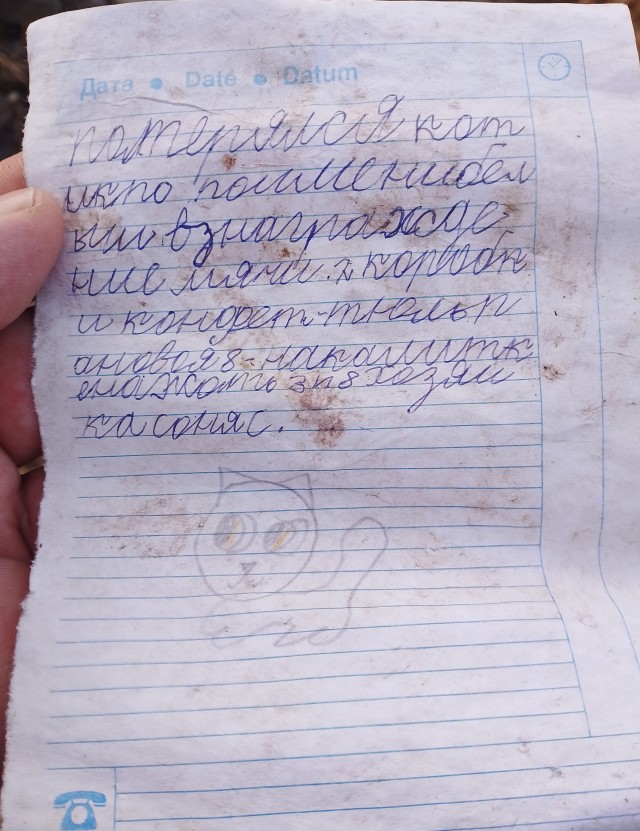 Дата • Date • Datum
потерялся кот
ик по имени бел
ыш взнагражде
ние мячи 2 коробк
и конфет-тюльп
ановая 8-на калитк
е нажать зп 8 хозяй
ка соня с.